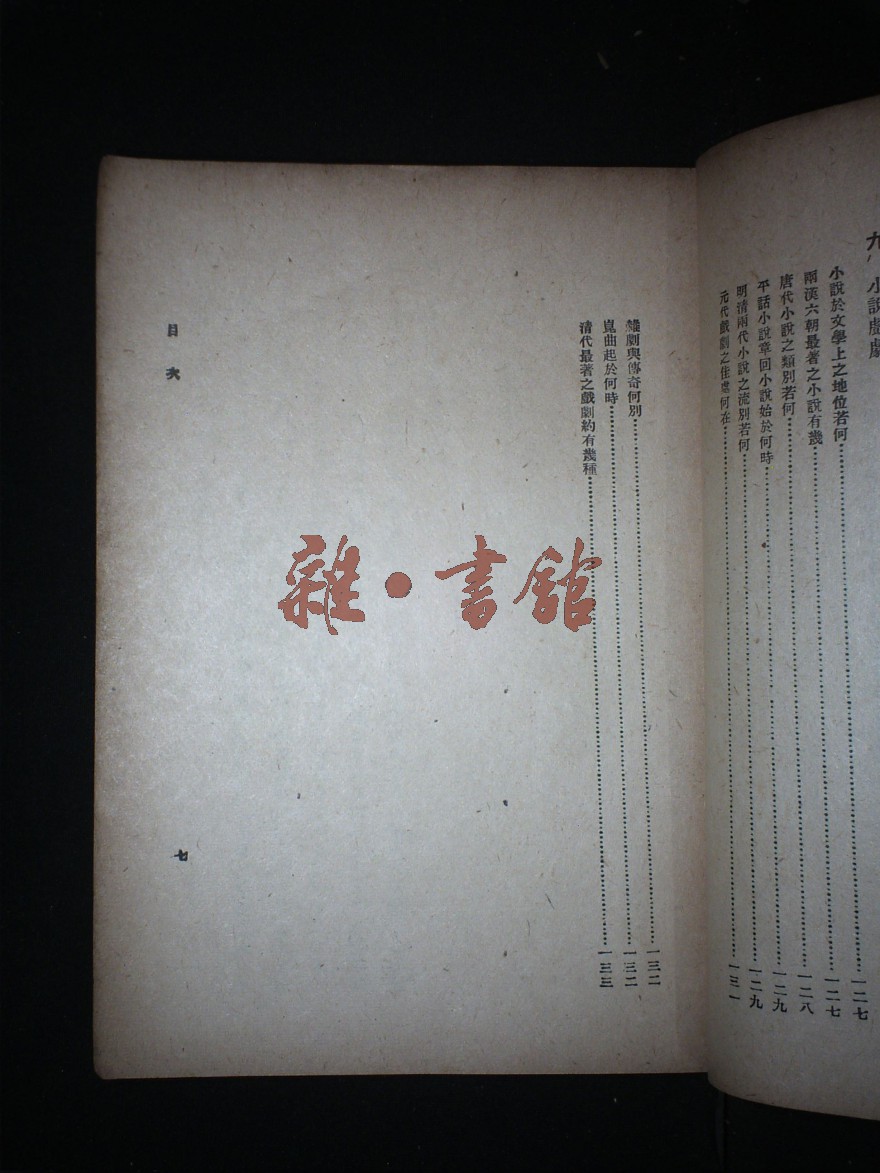 九、小說戲劇……一二七
小說於文學上之地位若何……一二七
兩漢六朝最著之小說有幾……一二八
唐代小說之類別若何……一二九
平話小說章回小說始於何時……一二九
明清兩代小說之流別若何……一三一
元代戲劇之佳處何在
雜劇與傳奇何別……一三二
崑曲起於何時……一三二
清代最著之戲劇約有幾種……一三三
目次
七
雜·書館